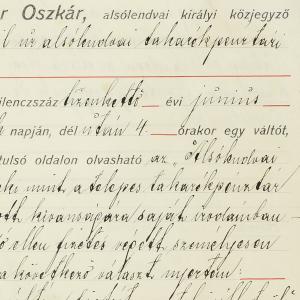 r Oszkár, alsólendvai királyi közjegyző
úr alsólendvai takarékpénztári
ilenczszáz tizenkettő évi június
napján, dél után 4 órakor egy váltót,
tulsó oldalon olvasható az „Alsólendvai
mint a telepes takarékpénztár
kivánságára saját irodámban
ellen fizetés végett személyesen
a következő választ nyertem: